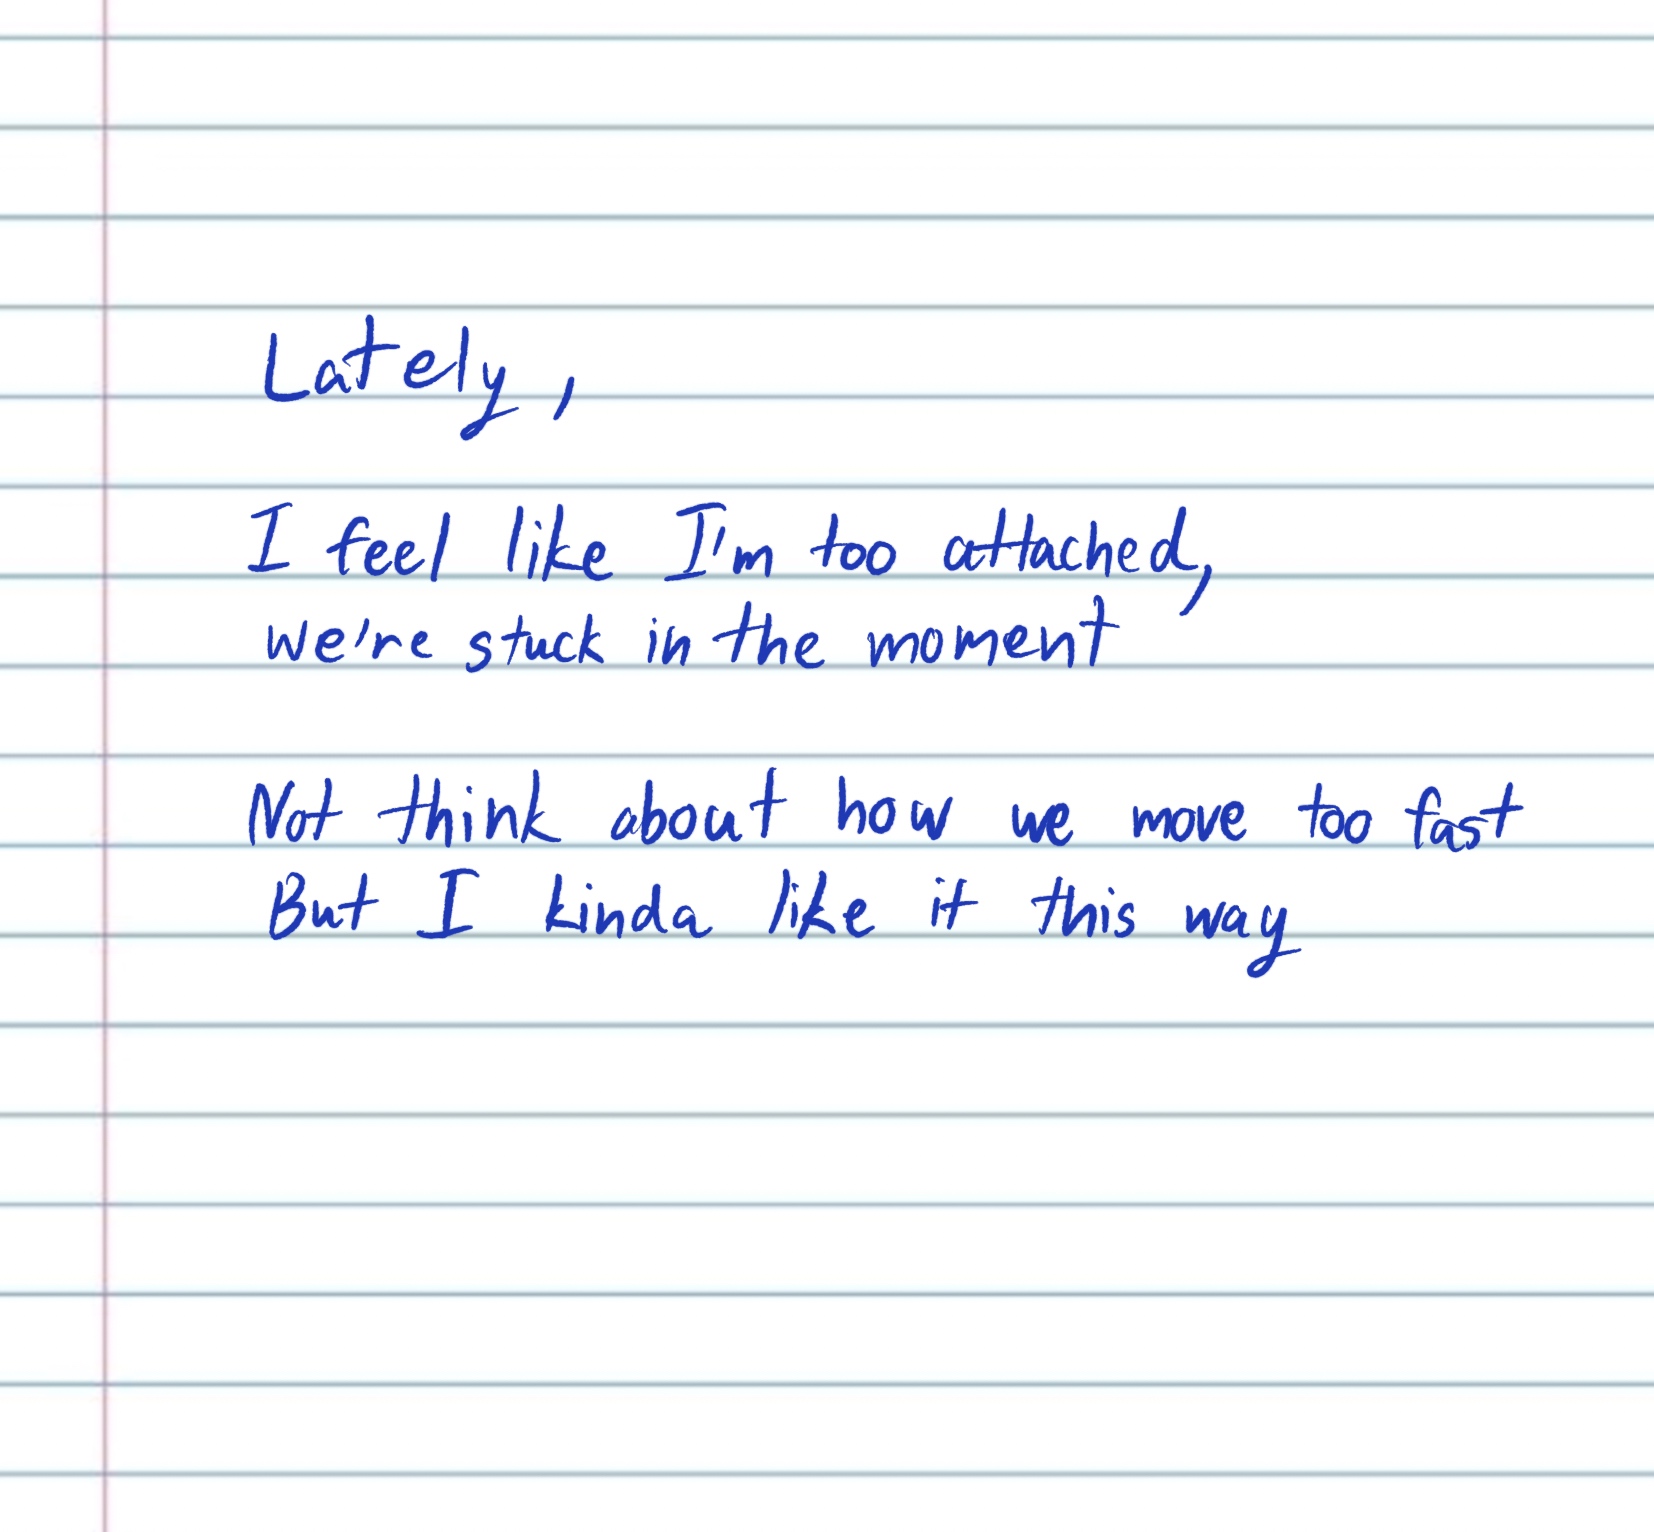 Lately,
I feel like I'm too attached,
we're stuck in the moment
Not think about how we move too fast
But I kinda like it this way